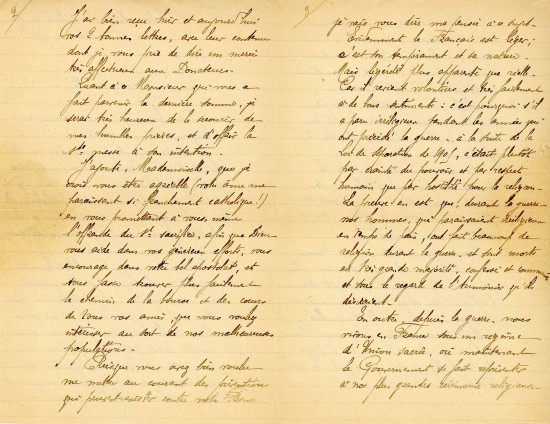 2)
J'ai bien reçu hier et aujourd'hui
vos 2 bonnes lettres, avec leur contenu
dont je vous prie de dire un merci
très affectueux aux Donateurs.
Quant à ce Monsieur qui vous a
fait parvenir la dernière somme, je
serai très heureux de le secourir de
mes humbles prières, et d'offrir la
Ste messe à son intention.
J'ajoute, Mademoiselle, que je
crois vous être agréable (votre âme me
paraissant si franchement catholique!)
en vous promettant à vous-même
l'offrande du St sacrifice, afin que Dieu
vous aide dans vos généreux efforts, vous
encourage dans votre bel apostolat, et
vous fasse trouver plus facilement
le chemin de la bourse et des cœurs
de tous vos amis, que vous voulez
intéresser au sort de nos malheureuses
populations.
Puisque vous avez bien voulu
me mettre au courant des préventions
qui peuvent exister contre notre France
3
je vais vous dire ma pensée à ce sujet.
Evidemment le Français est léger;
c'est son tempérament et sa nature.
Mais légèreté plus apparente que réelle.
Car il revient volontiers et très facilement
à de bons sentiments: c'est pourquoi s'il
a paru irréligieux pendant les années qui
ont précédé la guerre, à la suite de la
Loi de Séparation de 1905, c'était plutôt
par crainte du pouvoir, et par respect
humain que par hostilité pour la religion.
La preuve en est que, durant la guerre
nos hommes, qui paraissaient irréligieux
en temps de paix, ont fait beaucoup de
religion durant la guerre, et sont morts
en très grande majorité, confessés et communiés
et sous le regard de l'aumônier qu'ils
désiraient.
En outre, depuis la guerre, nous
vivons en France sous un régime
d'Union sacrée, où maintenant
le Gouvernement se fait représenter
à nos plus grandes cérémonies religieuses